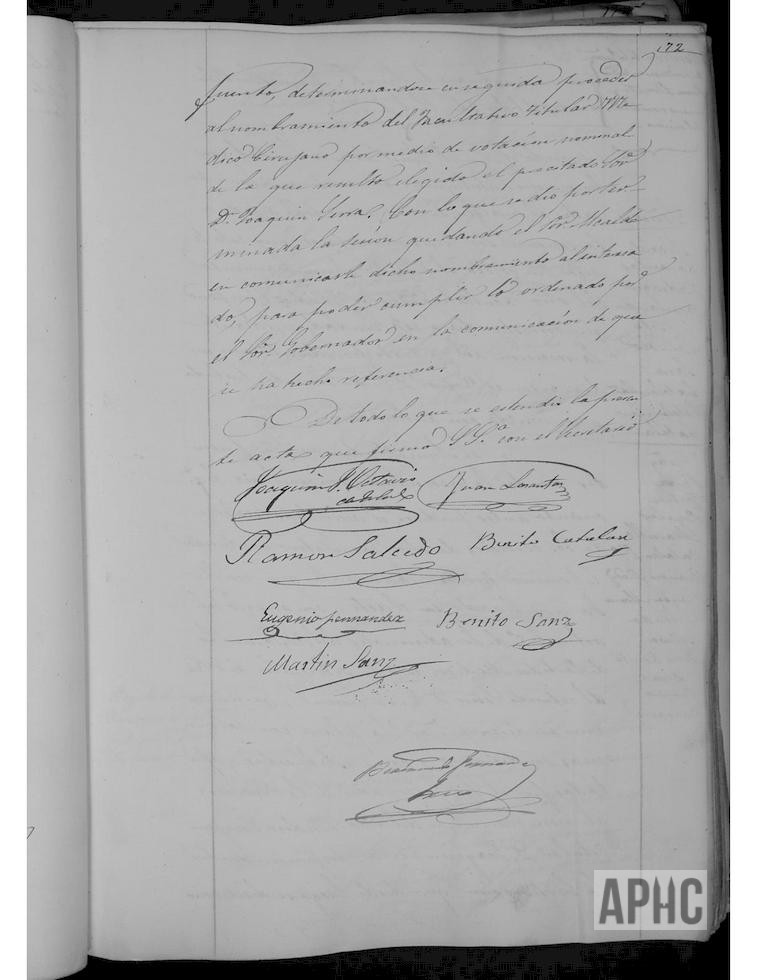 172
puento, determinandose en seguida proceder
al nombramiento del Facultativo Titular Me
dico Cirujano por medio de votación nominal
de la que resultó elegido el precitado Sor
Dn Joaquin Serra. Con lo que se dió por ter-
minada la sesión quedando el Sor Alcalde
en comunicarle dicho nombramiento al interesa
do, para poder cumplir lo ordenado por
el Sor Gobernador en la comunicación de que
se ha hecho referencia.
De todo lo que se estendió la presen
te acta que firma S.Sª con el Secretario
Joaquin Octavio
Juan Losantos
Ramon Salcedo Benito Catalan
Eugenio fernandez Benito Sanz
Martin Sanz
Srio
APHC